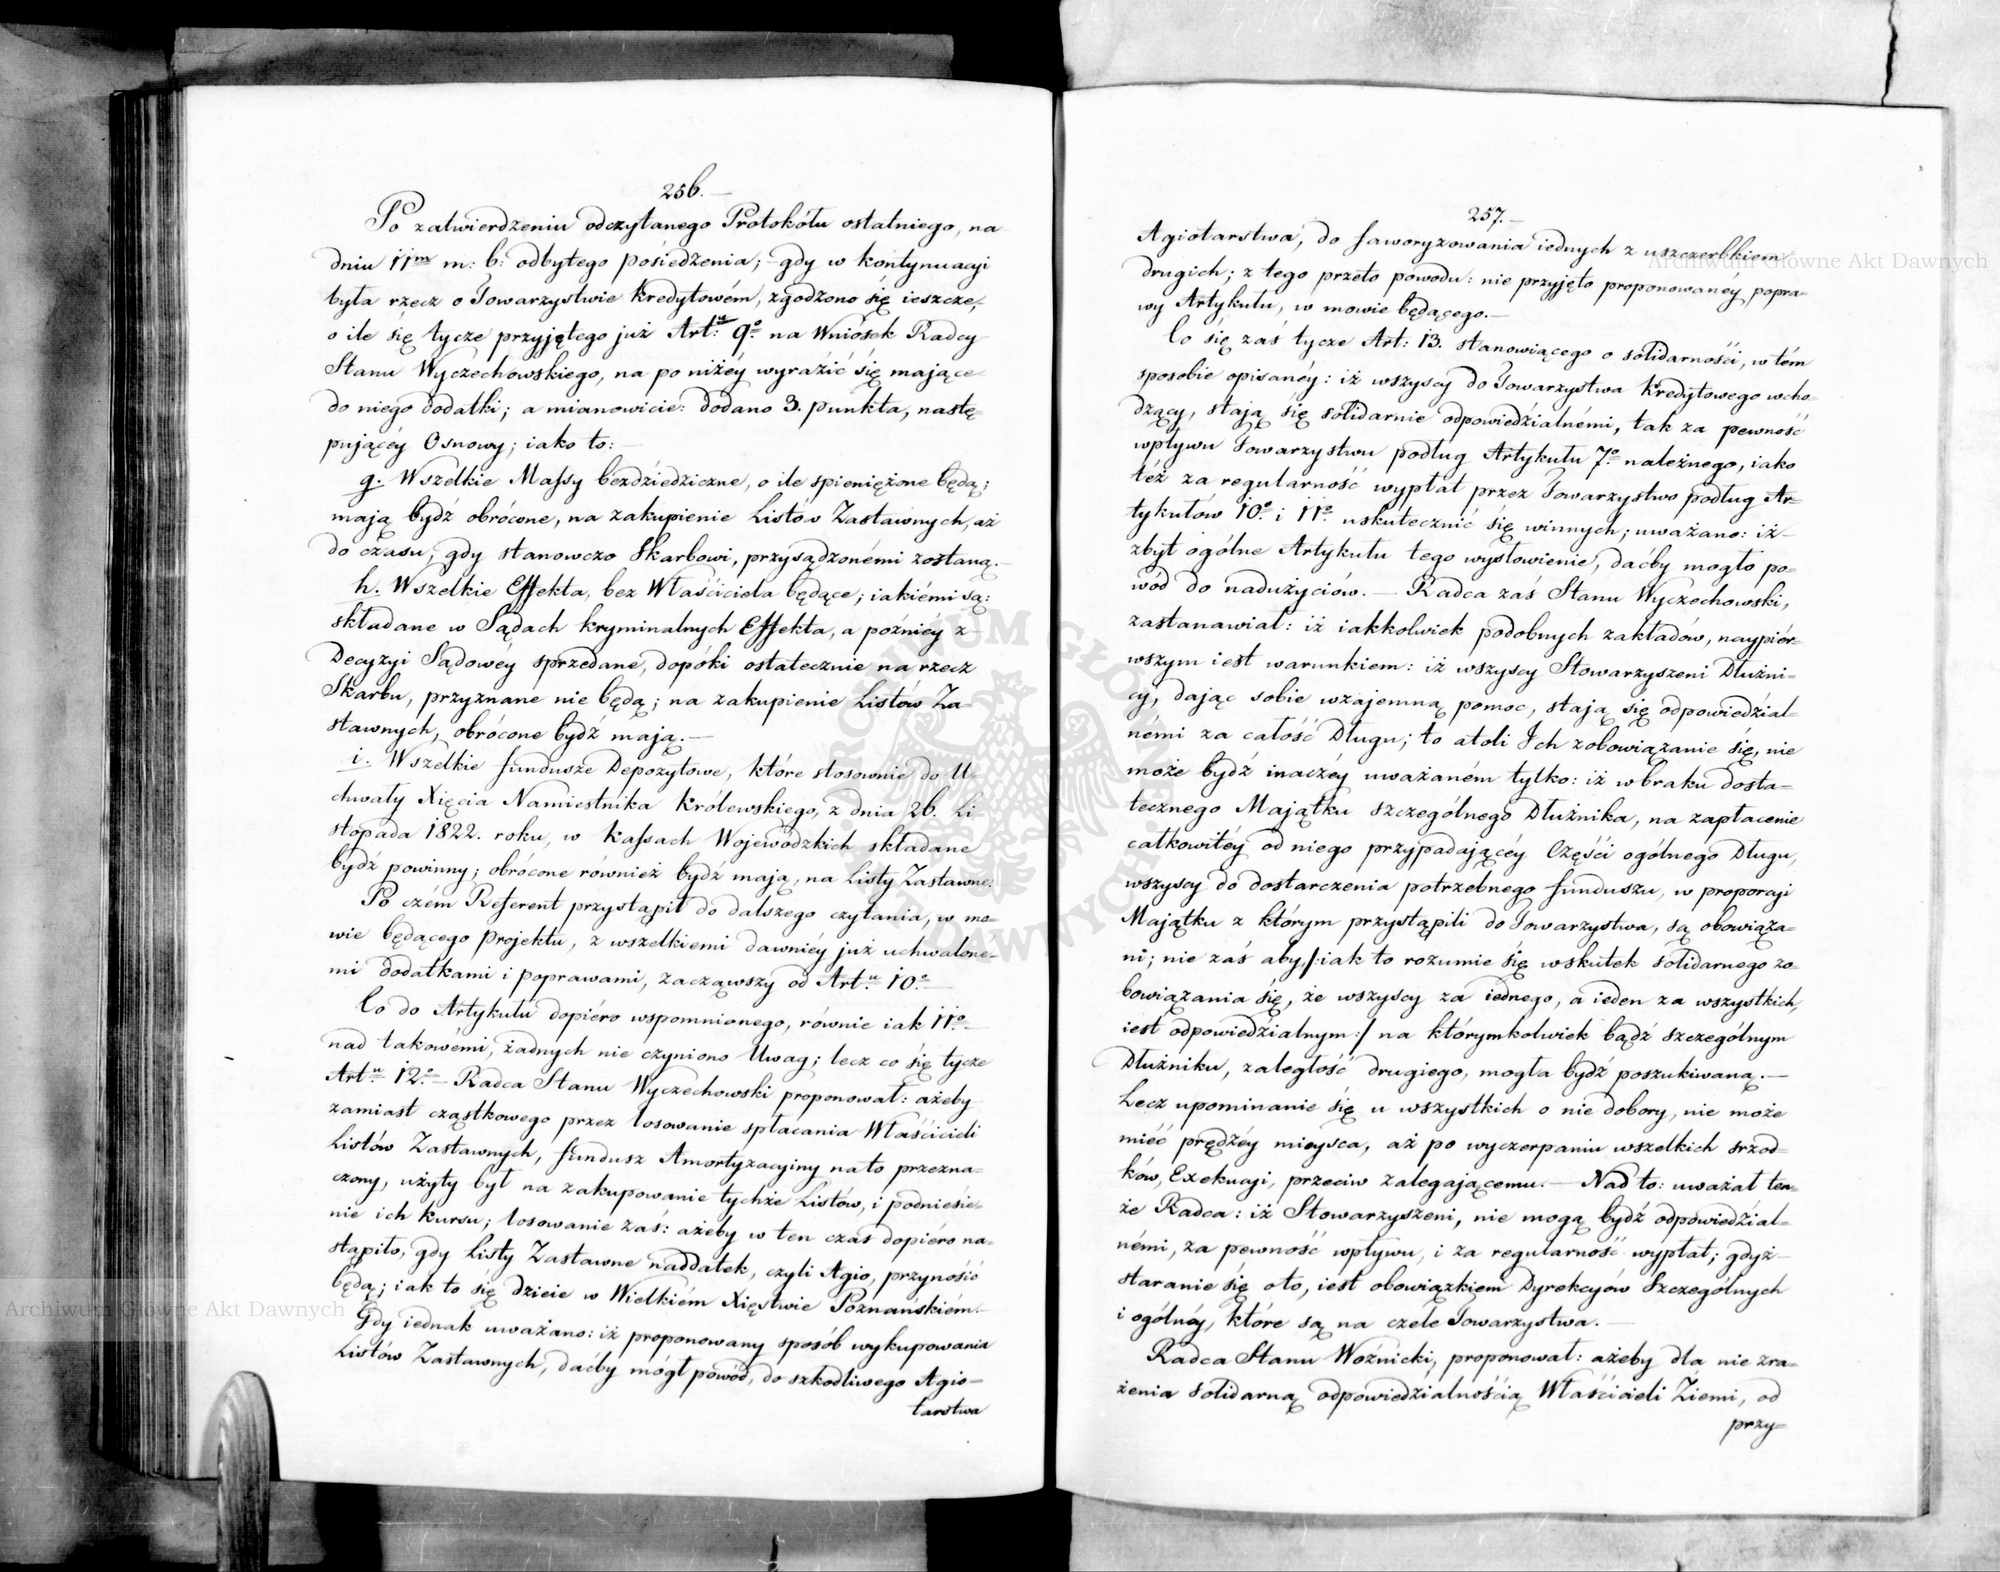 256.
Po zatwierdzeniu odczytanego Protokółu ostatniego, na
dniu 11m m: b: odbytego posiedzenia; gdy w kontynuacyi
była rzecz o Towarzystwie Kredytowém, zgodzono się ieszcze,
o ile się tycze przyjętego już Art:u 9o na Wniosek Radcy
Stanu Wyczechowskiego, na poniżéy wyrazić się mające
do niego dodatki; a mianowicie: dodano 3. punkta, nastę=
pującéy Osnowy; iako to:
g. Wszelkie Massy bezdziedziczne, o ile spieniężone będą;
mają bydź obrócone, na zakupienie Listów Zastawnych, aż
do czasu, gdy stanowczo Skarbowi, przysądzonémi zostaną.
h. Wszelkie Effekta, bez Właściciela będące; iakiémi są:
składane w Sądach kryminalnych Effekta, a późniéy z
Decyzyi Sądowéy sprzedane, dopóki ostatecznie na rzecz
Skarbu, przyznane nie będą; na zakupienie Listów Za=
stawnych, obrócone bydź mają.—
i. Wszelkie fundusze Depozytowe, które stosownie do U=
chwały Xięcia Namiestnika Królewskiego, z dnia 26. Li=
stopada 1822. roku, w Kassach Wojewódzkich składane
bydź powinny; obrócone również bydź mają, na Listy Zastawne.
Po czém Referent przystąpił do dalszego czytania, w mo=
wie będącego Projektu, z wszelkiemi dawniéy już uchwalone=
mi dodatkami i poprawami, zacząwszy od Art.u 10.o
Co do Artykułu dopiéro wspomnionego, równie iak 11.o
nad takowémi, żadnych nie czyniono Uwag; lecz co się tycze
Art.u 12.o Radca Stanu Wyczechowski proponował: ażeby
zamiast cząstkowego przez losowanie spłacania Właścicieli
Listów Zastawnych, fundusz Amortyzacyiny na to przezna=
czony, użyty był na zakupowanie tychże Listów, i podniesie=
nie ich kursu; losowanie zaś: ażeby w ten czas dopiéro na=
stąpiło, gdy Listy Zastawne naddatek, czyli Agio, przynosić
będą; iak to się dzieie w Wielkiém Xięstwie Poznańskiém.—
Gdy iednak uważano: iż proponowany sposób wykupowania
Listów Zastawnych, daćby mógł powód, do szkodliwego Agio=
tarstwa
257.
Agiotarstwa, do faworyzowania iednych z uszczerbkiem
drugich; z tego przeto powodu: nie przyjęto proponowaney popra=
wy Artykułu, w mowie będącego.—
Co się zaś tycze Art: 13. stanowiącego o solidarności, w tém
sposobie opisanéy: iż wszyscy do Towarzystwa Kredytowego wcho=
dzący, stają się solidarnie odpowiedzialnémi, tak za pewność
wpływu Towarzystwu podług Artykułu 7.o należnego, iako
téż za regularność wypłat przez Towarzystwo podług Ar=
tykułów 10.o i 11.o uskutecznić się winnych; uważano: iż
zbyt ogólne Artykułu tego wysłowienie, daćby mogło po=
wód do nadużyciów.— Radca zaś Stanu Wyczechowski,
zastanawiał: iż iakkolwiek podobnych zakładów, naypiér=
wszym iest warunkiem: iż wszyscy Stowarzyszeni Dłużni=
cy, dając sobie wzajemną pomoc, stają się odpowiedzial=
némi za całość Długu; to atoli Ich zobowiązanie się, nie
może bydź inaczéy uważaném tylko: iż w braku dosta=
tecznego Majątku szczególnego Dłużnika, na zapłacenie
całkowitéy od niego przypadającéy Części ogólnego Długu,
wszyscy do dostarczenia potrzebnego funduszu, w proporcyi
Majątku z którym przystąpili do Towarzystwa, są obowiąza=
ni; nie zaś aby /:iak to rozumie się wskutek solidarnego zo=
bowiązania się, że wszyscy za iednego, a ieden za wszystkich,
iest odpowiedzialnym:/ na którymkolwiek bądź szczególnym
Dłużniku, zaległość drugiego, mogła bydź poszukiwaną.—
Lecz upominanie się u wszystkich o nie dobory, nie może
mieć prędzéy mieysca, aż po wyczerpaniu wszelkich srzod=
ków, Exekucyi, przeciw zalegającemu.— Nad to: uważał ten=
że Radca: iż Stowarzyszeni, nie mogą bydź odpowiedzial=
némi, za pewność wpływu, i za regularność wypłat; gdyż
staranie się o to, iest obowiązkiem Dyrekcyów Szczególnych
i ogólnéy, które są na czele Towarzystwa.—
Radca Stanu Woźnicki, proponował: ażeby dla nie zra=
żenia solidarną odpowiedzialnością Właścicieli Ziemi, od
przy=
Archiwum Główne Akt Dawnych
Archiwum Główne Akt Dawnych
ARCHIWUM GŁÓWNE AKT DAWNYCH